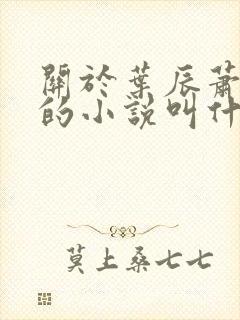 關於葉辰蕭
的小說叫什
莫上桑七七